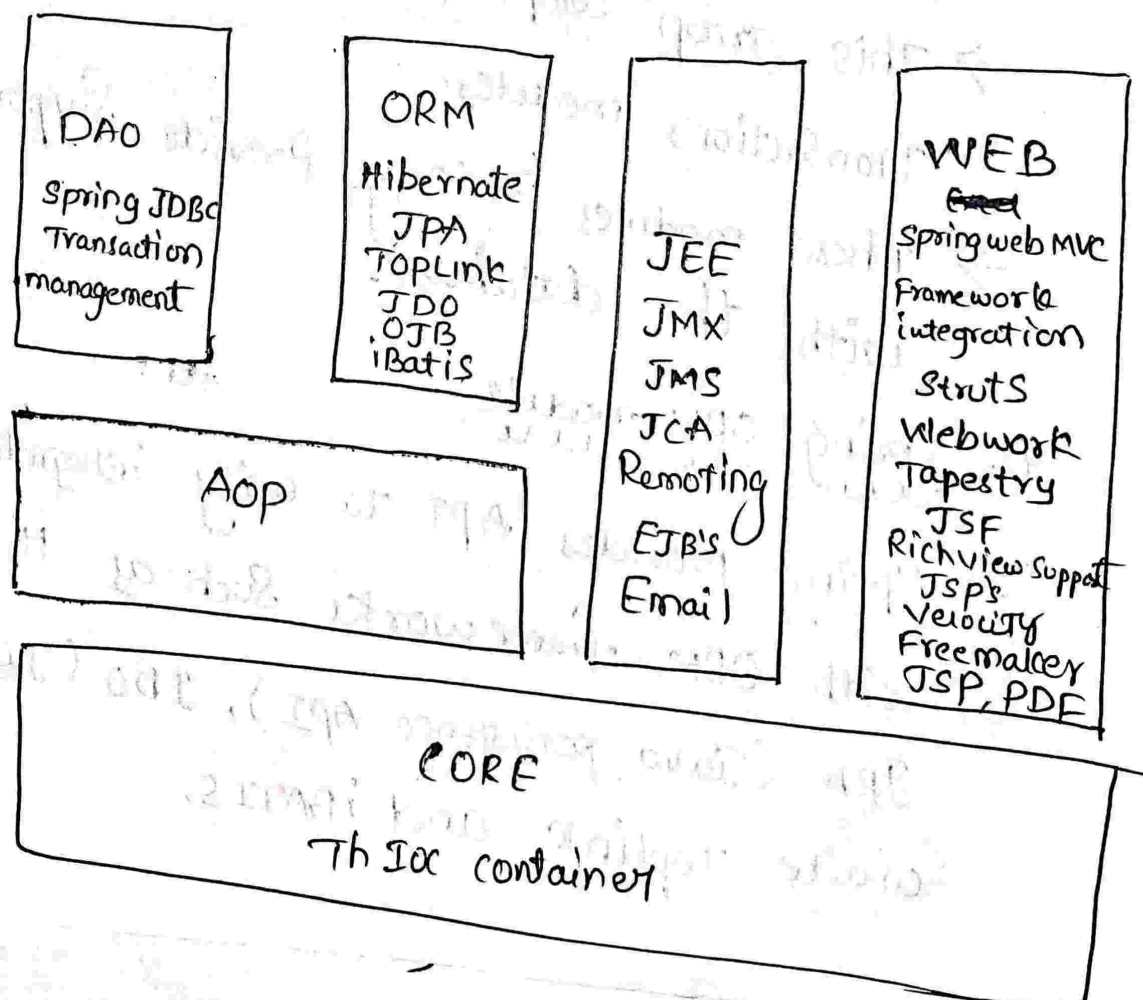 DAO
Spring JDBC
Transaction
management
ORM
Hibernate
JPA
TOPLink
JDO
OJB
iBatis
JEE
JMX
JMS
JCA
Remoting
EJB's
Email
WEB
Spring web MVC
Framework
integration
Struts
Webwork
Tapestry
JSF
Richview Support
JSP's
Velocity
Freemaker
JSP, PDF
AOP
CORE
Th IOC container